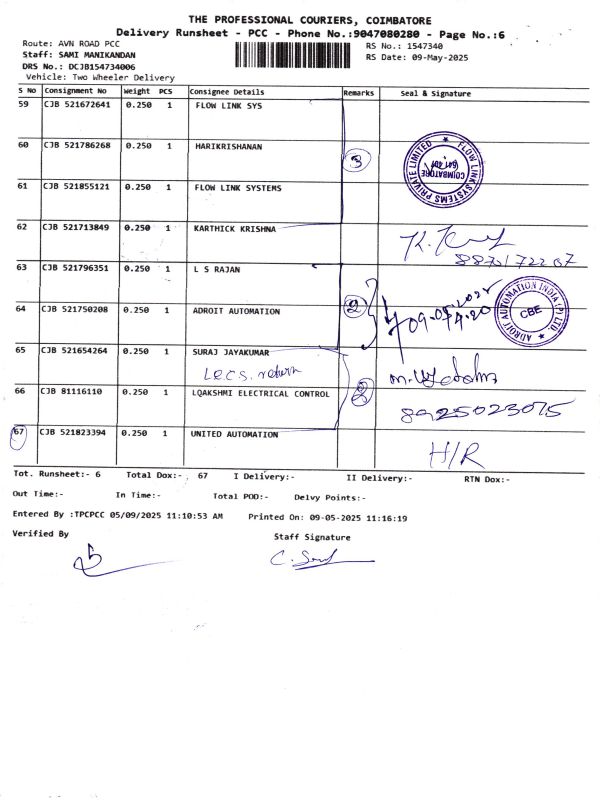 THE PROFESSIONAL COURIERS, COIMBATORE
Delivery Runsheet - PCC - Phone No.:9047080280 - Page No.:6
Route: AVN ROAD PCC
RS No.: 1547340
Staff: SAMI MANIKANDAN
RS Date: 09-May-2025
DRS No.: DCJB154734006
Vehicle: Two Wheeler Delivery
S No Consignment No Weight PCS Consignee Details Remarks Seal & Signature
59 CJB 521672641 0.250 1 FLOW LINK SYS
60 CJB 521786268 0.250 1 HARIKRISHANAN
3
FLOW LINK SYSTEMS PRIVATE LIMITED ★
COIMBATORE
641 401
61 CJB 521855121 0.250 1 FLOW LINK SYSTEMS
62 CJB 521713849 0.250 1 KARTHICK KRISHNA
63 CJB 521796351 0.250 1 L S RAJAN
64 CJB 521750208 0.250 1 ADROIT AUTOMATION
2
ADROIT AUTOMATION INDIA (P) LTD ★
CBE
65 CJB 521654264 0.250 1 SURAJ JAYAKUMAR
L.E.C.S. return
66 CJB 81116110 0.250 1 LQAKSHMI ELECTRICAL CONTROL
2
8925023075
67 CJB 521823394 0.250 1 UNITED AUTOMATION
H/R
Tot. Runsheet:- 6 Total Dox:- 67 I Delivery:- II Delivery:- RTN Dox:-
Out Time:- In Time:- Total POD:- Delvy Points:-
Entered By :TPCPCC 05/09/2025 11:10:53 AM Printed On: 09-05-2025 11:16:19
Verified By Staff Signature